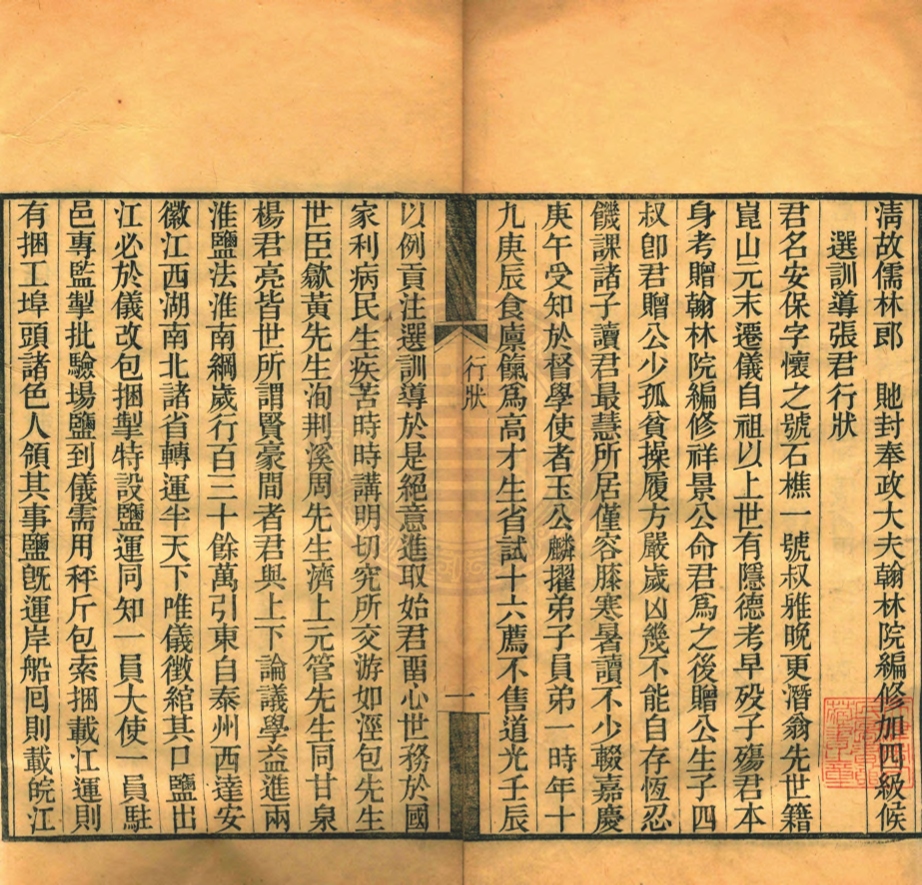 淸故儒林郎 貤封奉政大夫翰林院編修加四級候
選訓導張君行狀
君名安保字懷之號石樵一號叔雅晚更潛翁先世籍
崑山元末遷儀自祖以上世有隱德考早歿子殤君本
身考贈翰林院編修祥景公命君爲之後贈公生子四
叔卽君贈公少孤貧操履方嚴歲凶幾不能自存恆忍
饑課諸子讀君最慧所居僅容膝寒暑讀不少輟嘉慶
庚午受知於督學使者玉公麟擢弟子員弟一時年十
九庚辰食廩餼爲高才生省試十六薦不售道光壬辰
行狀
一
以例貢注選訓導於是絕意進取始君畱心世務於國
家利病民生疾苦時時講明切究所交游如涇包先生
世臣歙黃先生洵荆溪周先生濟上元管先生同甘泉
楊君亮皆世所謂賢豪間者君與上下論議學益進兩
淮鹽法淮南綱歲行百三十餘萬引東自泰州西達安
徽江西湖南北諸省轉運半天下唯儀徵綰其口鹽出
江必於儀改包捆掣特設鹽運同知一員大使一員駐
邑專監掣批驗場鹽到儀需用秤斤包索捆載江運則
有捆工埠頭諸色人領其事鹽旣運岸船囘則載皖江